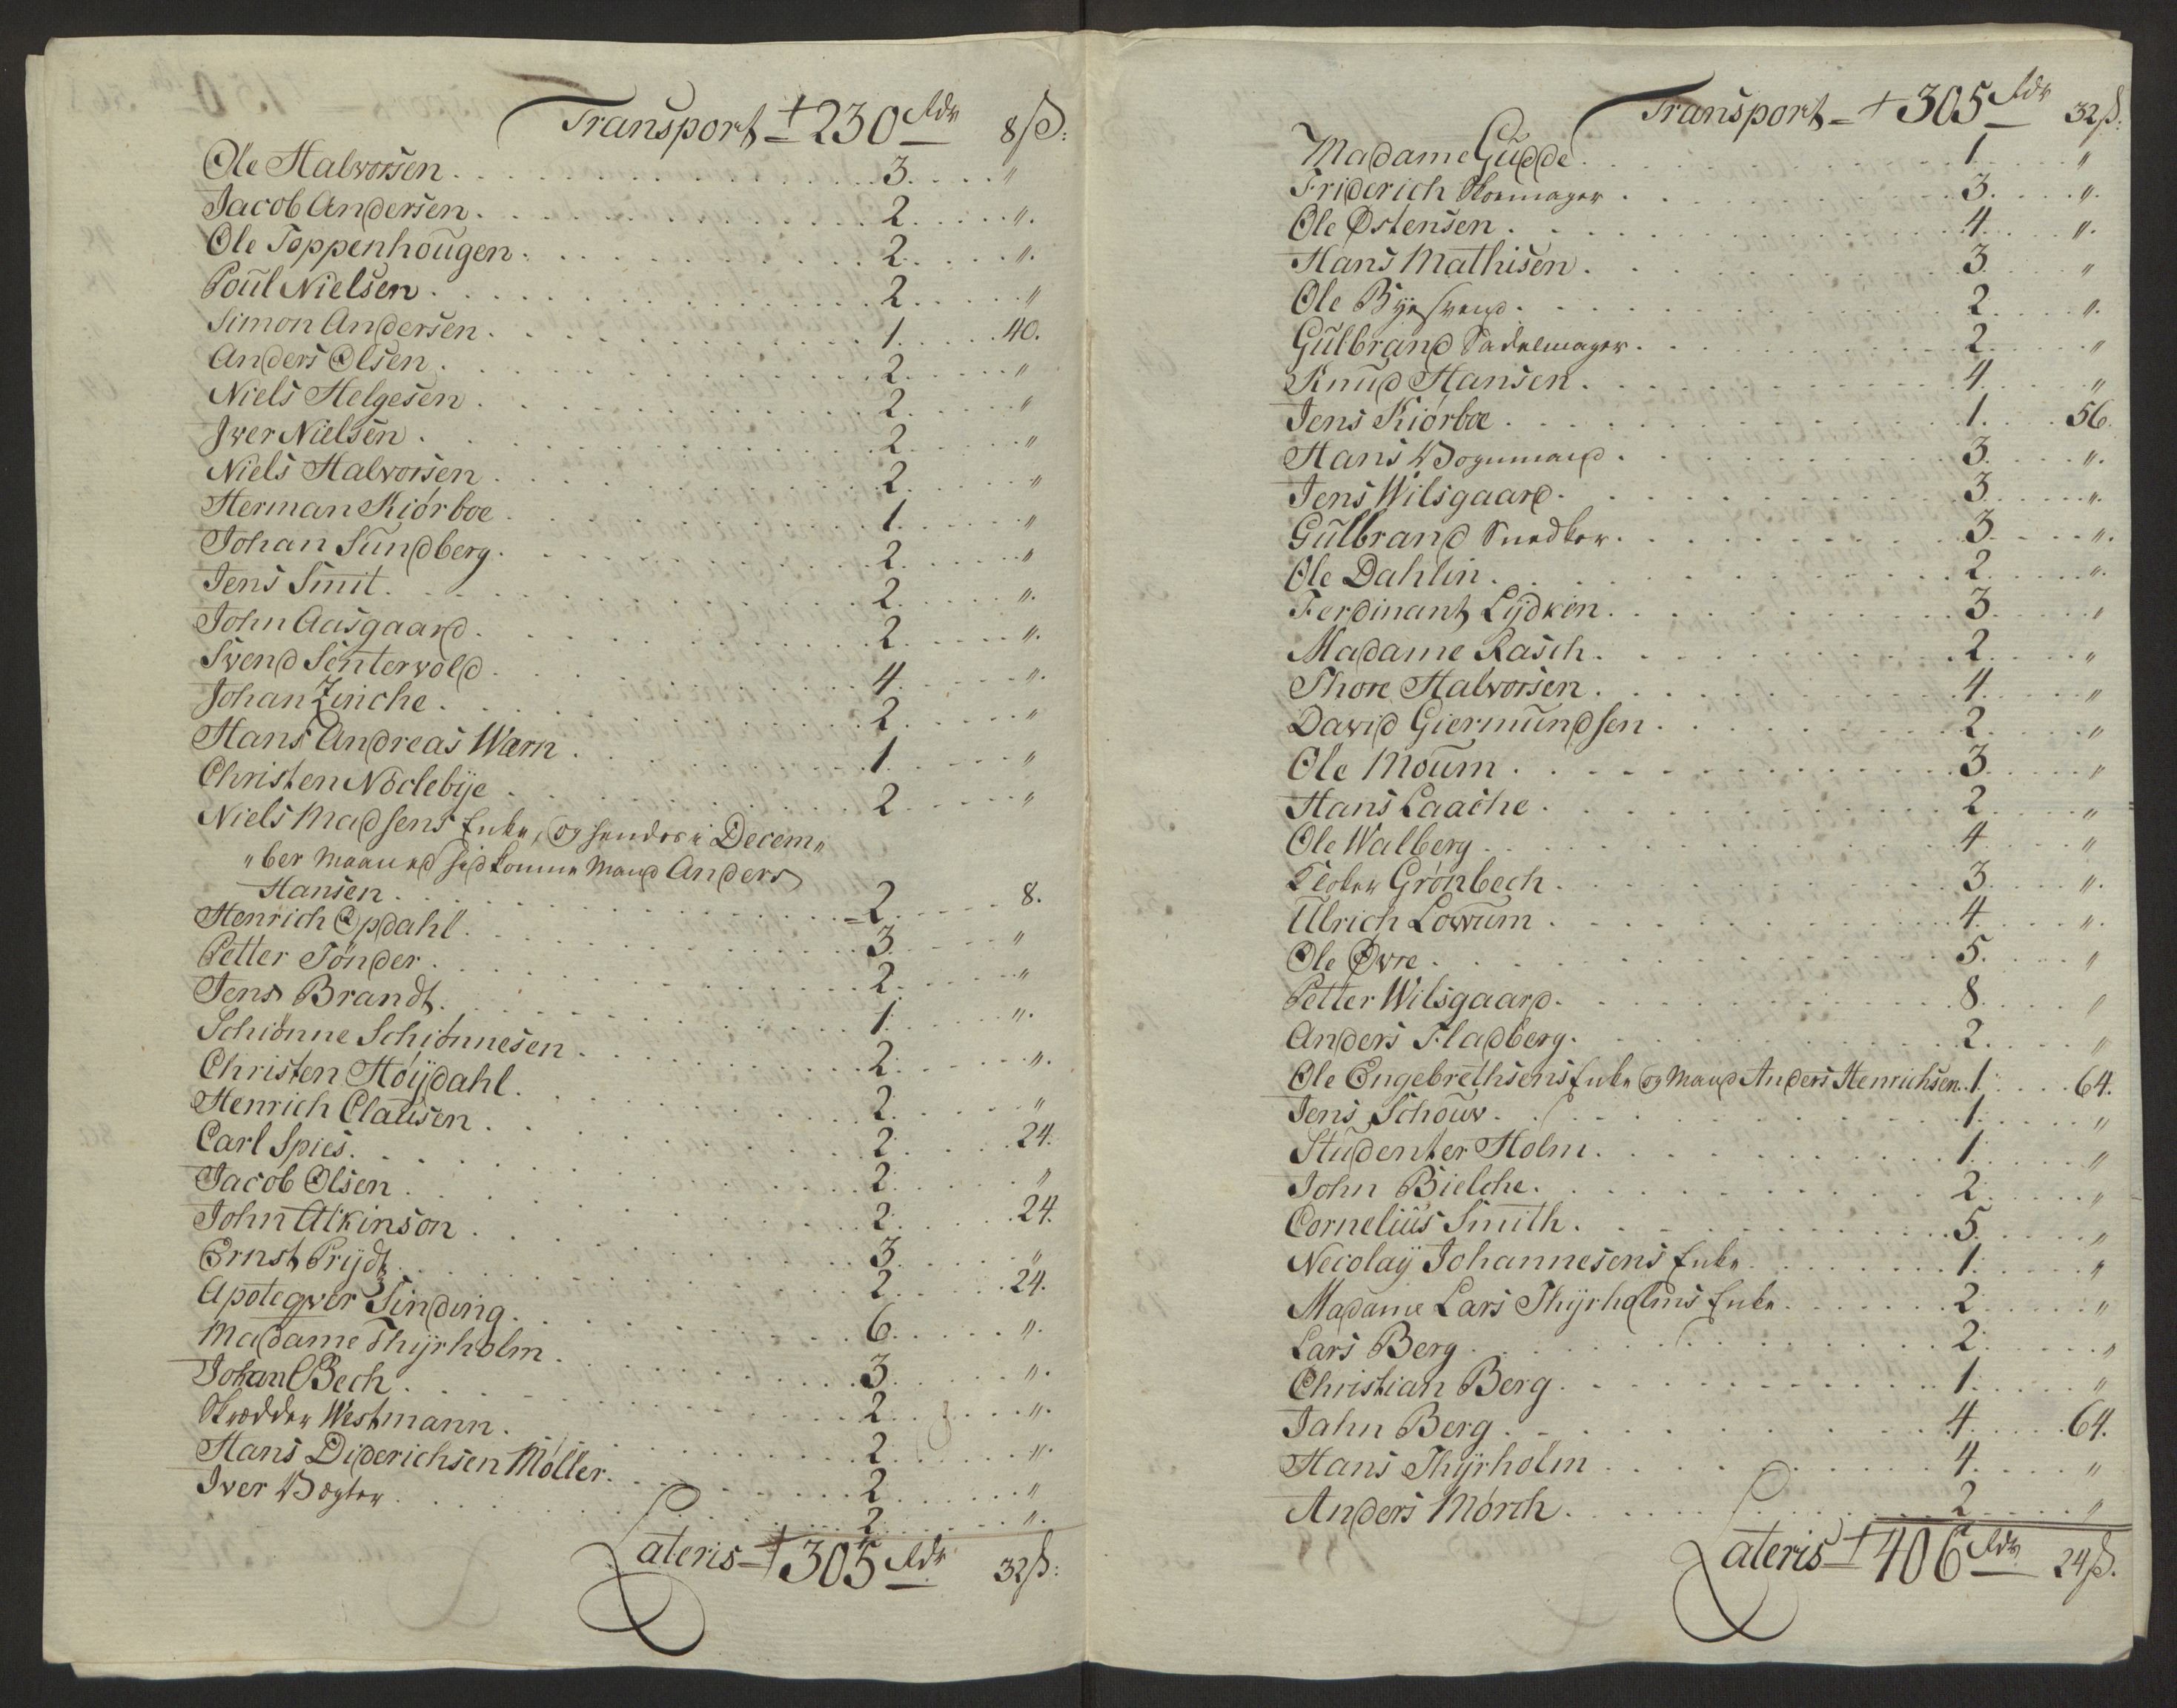 Transport = + 230 Rdr 8 ß:
Ole Halvorsen . . . 3 . . . "
Jacob Andersen . . . 2 . . . "
Ole Toppenhougen . . . 2 . . . "
Poul Nielsen . . . 2 . . . "
Simon Andersen . . . 1 . . . 40.
Anders Olsen . . . 2 . . . "
Niels Helgesen . . . 2 . . . "
Iver Nielsen . . . 2 . . . "
Niels Halvorsen . . . 2 . . . "
Herman Kiórboe . . . 1 . . . "
Johan Sundberg . . . 2 . . . "
Jens Smit . . . 2 . . . "
John Aasgaard . . . 2 . . . "
Svend Sentervold . . . 4 . . . "
Johan Zinche . . . 2 . . . "
Hans Andreas Wærn . . . 1 . . . "
Christen Nöclebÿe . . . 2 . . . "
Niels Madsens Enke, og hendes i Decem„
„ber Maaned Mand Anders
Hansen . . . 2 . . . 8.
Henrich Opdahl . . . 3 . . . "
Petter Tönder . . . 2 . . . "
Jens Brandt . . . 1 . . . "
Schiönne Schiönnesen . . . 2 . . . "
Christen Höÿdahl . . . 2 . . . "
Henrich Clausen . . . 2 . . . 24.
Carl Spies . . . 2 . . . "
Jacob Olsen . . . 2 . . . 24.
John Atkinson . . . 3 . . . "
Ernst Prÿdz . . . 2 . . . 24.
Apoteqver Sinding . . . 6 . . . "
Madame Thÿrholm . . . 3 . . . "
Johan Bech . . . 2 . . . "
Skrædder Westmann . . . 2 . . . "
Hans Diderichsen Möller . . . 2 . . . "
Iver Vægter . . . 2 . . . "
Lateris = + 305 Rdr 32 ß:
Transport = + 305 Rdr 32 ß:
Madame Gudde . . . 1 . . . "
Friderich Skoemager . . . 3 . . . "
Ole Østensen . . . 4 . . . "
Hans Mathisen . . . 3 . . . "
Ole Byesvend . . . 2 . . . "
Gulbrand Sadelmager . . . 2 . . . "
Knud Hansen . . . 4 . . . "
Jens Kiórboe . . . 1 . . . 56.
Hans Vognmand . . . 3 . . . "
Jens Wilsgaard . . . 3 . . . "
Gulbrand Snedker . . . 3 . . . "
Ole Dahlin . . . 2 . . . "
Ferdinant Lÿdkin . . . 3 . . . "
Madame Rasch . . . 2 . . . "
Thore Halvorsen . . . 4 . . . "
David Giermundsen . . . 2 . . . "
Ole Moum . . . 3 . . . "
Hans Laache . . . 2 . . . "
Ole Walberg . . . 4 . . . "
Kloker Grönbech . . . 3 . . . "
Ulrich Lowum . . . 4 . . . "
Ole Øvre . . . 5 . . . "
Petter Wilsgaard . . . 8 . . . "
Anders Fladberg . . . 2 . . . "
Ole Engebrethsens Enke og Mand Anders Henrichsen . . 1 . . . 64.
Jens Schouw . . . 1 . . . "
Studenter Holm . . . 1 . . . "
John Bielche . . . 2 . . . "
Cornelius Smith . . . 5 . . . "
Necolaÿ Johannesens Enke . . . 1 . . . "
Madame Lars Thÿrholms Enke . . . 2 . . . "
Lars Berg . . . 2 . . . "
Christian Berg . . . 1 . . . "
Jahn Berg . . . 4 . . . 64.
Hans Thÿrholm . . . 4 . . . "
Anders Mörch . . . 2 . . . "
Lateris = + 406 Rdr 24 ß.